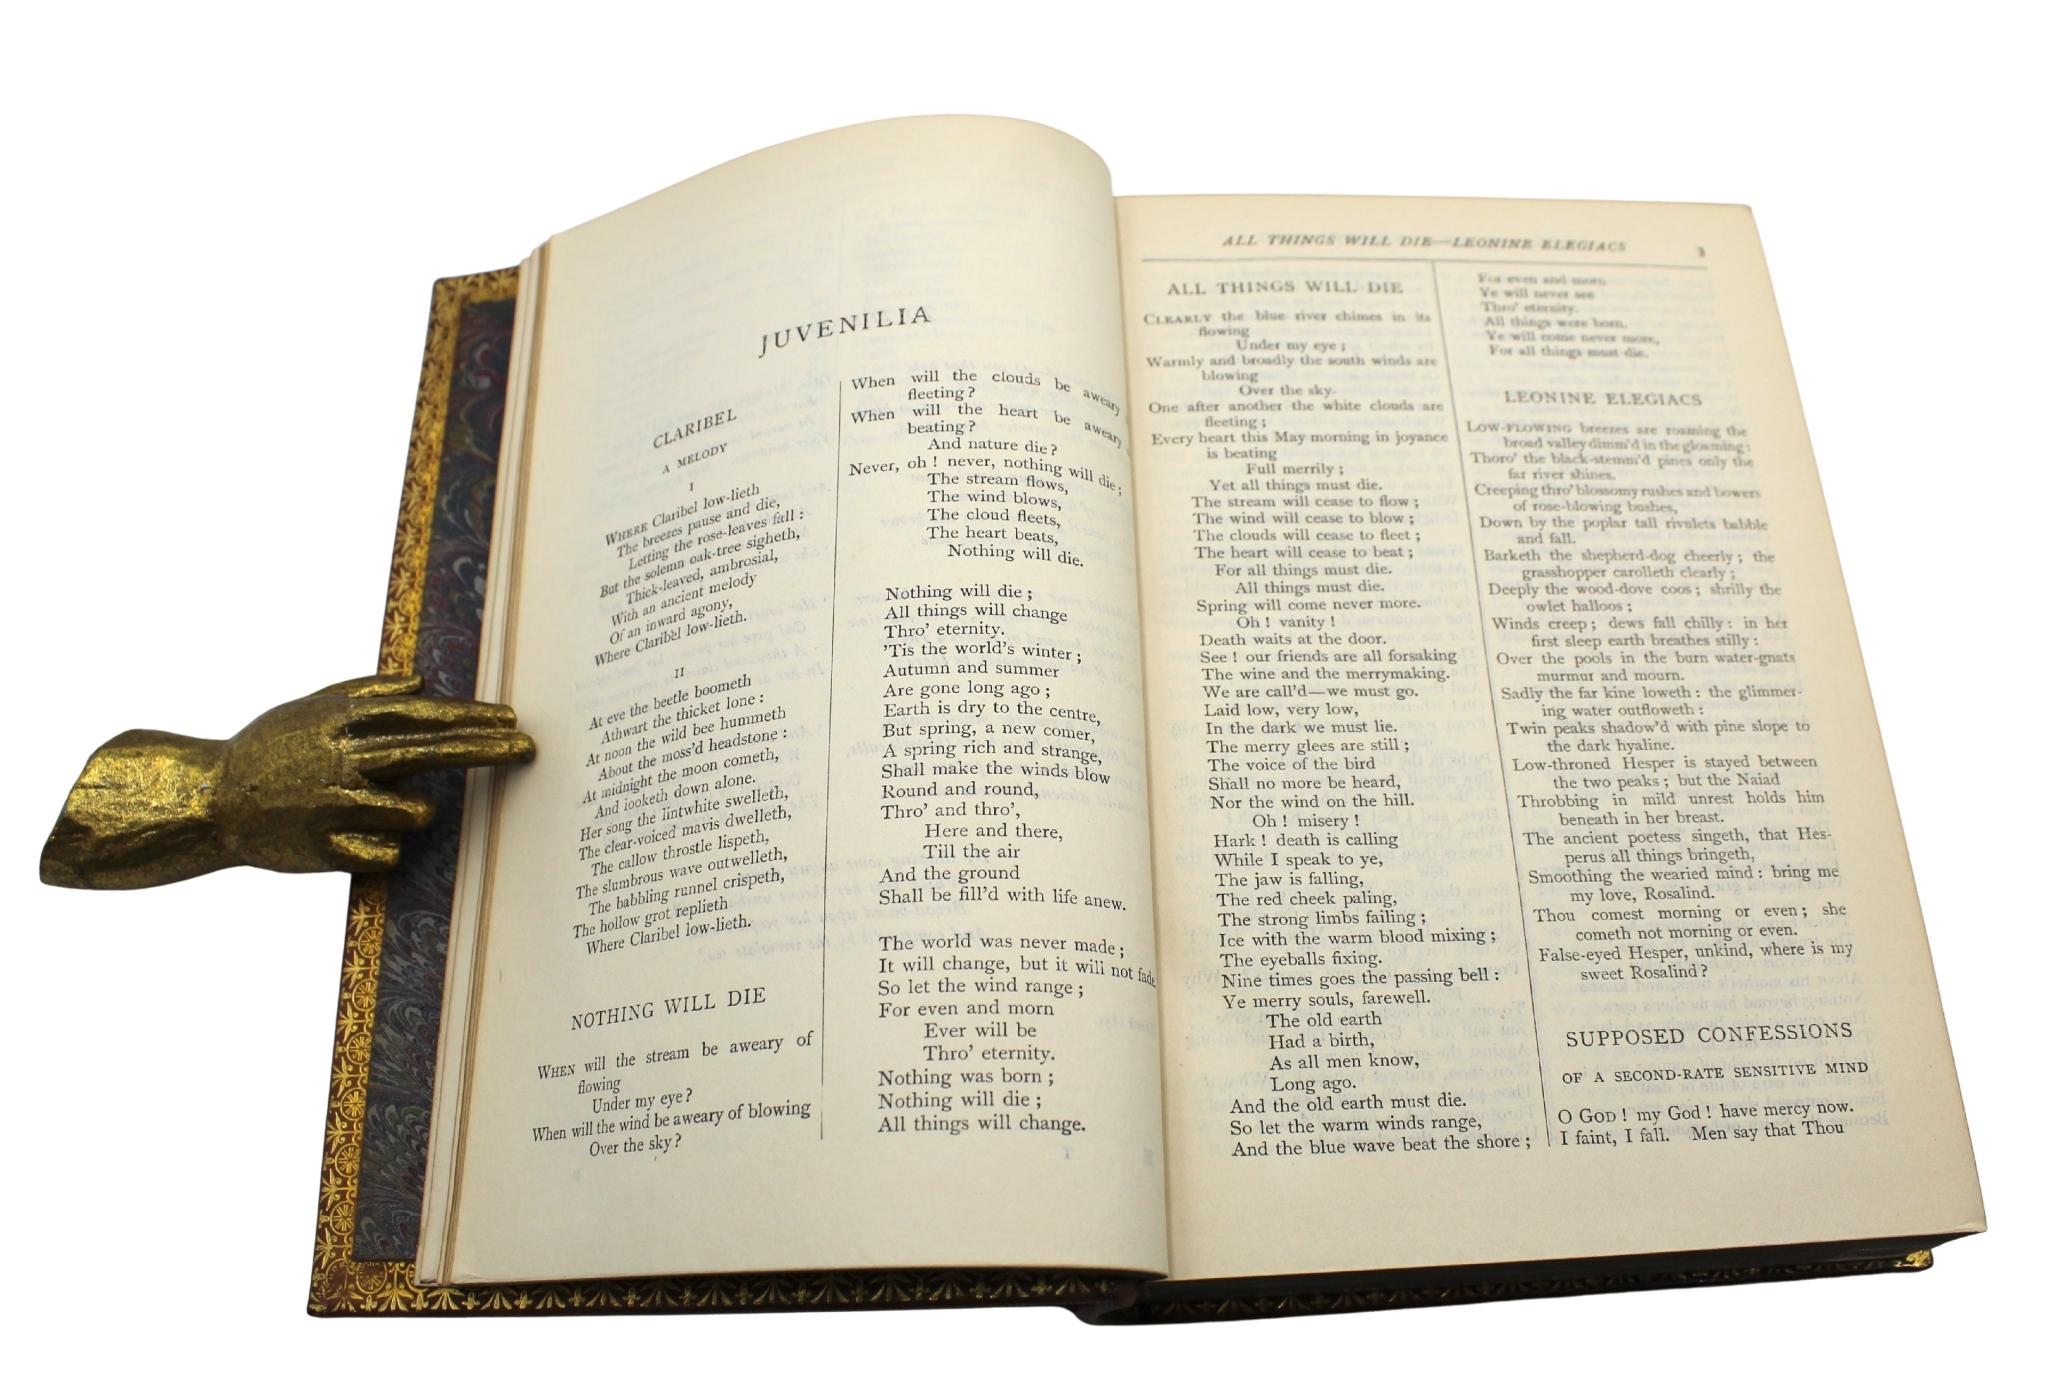 JUVENILIA
CLARIBEL
A MELODY
I
WHERE Claribel low-lieth
The breezes pause and die,
Letting the rose-leaves fall :
But the solemn oak-tree sigheth,
Thick-leaved, ambrosial,
With an ancient melody
Of an inward agony,
Where Claribel low-lieth.
II
At eve the beetle boometh
Athwart the thicket lone :
At noon the wild bee hummeth
About the moss'd headstone :
At midnight the moon cometh,
And looketh down alone.
Her song the lintwhite swelleth,
The clear-voiced mavis dwelleth,
The callow throstle lispeth,
The slumbrous wave outwelleth,
The babbling runnel crispeth,
The hollow grot replieth
Where Claribel low-lieth.
NOTHING WILL DIE
WHEN will the stream be aweary of
flowing
Under my eye ?
When will the wind be aweary of blowing
Over the sky ?
When will the clouds be aweary
fleeting ?
When will the heart be aweary
beating ?
And nature die ?
Never, oh ! never, nothing will die ;
The stream flows,
The wind blows,
The cloud fleets,
The heart beats,
Nothing will die.
Nothing will die ;
All things will change
Thro' eternity.
'Tis the world's winter ;
Autumn and summer
Are gone long ago ;
Earth is dry to the centre,
But spring, a new comer,
A spring rich and strange,
Shall make the winds blow
Round and round,
Thro' and thro',
Here and there,
Till the air
And the ground
Shall be fill'd with life anew.
The world was never made ;
It will change, but it will not fade.
So let the wind range ;
For even and morn
Ever will be
Thro' eternity.
Nothing was born ;
Nothing will die ;
All things will change.
ALL THINGS WILL DIE—LEONINE ELEGIACS 3
ALL THINGS WILL DIE
CLEARLY the blue river chimes in its
flowing
Under my eye ;
Warmly and broadly the south winds are
blowing
Over the sky.
One after another the white clouds are
fleeting ;
Every heart this May morning in joyance
is beating
Full merrily ;
Yet all things must die.
The stream will cease to flow ;
The wind will cease to blow ;
The clouds will cease to fleet ;
The heart will cease to beat ;
For all things must die.
All things must die.
Spring will come never more.
Oh ! vanity !
Death waits at the door.
See ! our friends are all forsaking
The wine and the merrymaking.
We are call'd—we must go.
Laid low, very low,
In the dark we must lie.
The merry glees are still ;
The voice of the bird
Shall no more be heard,
Nor the wind on the hill.
Oh ! misery !
Hark ! death is calling
While I speak to ye,
The jaw is falling,
The red cheek paling,
The strong limbs failing ;
Ice with the warm blood mixing ;
The eyeballs fixing.
Nine times goes the passing bell :
Ye merry souls, farewell.
The old earth
Had a birth,
As all men know,
Long ago.
And the old earth must die.
So let the warm winds range,
And the blue wave beat the shore ;
For even and morn
Ye will never see
Thro' eternity.
All things were born.
Ye will come never more,
For all things must die.
LEONINE ELEGIACS
LOW-FLOWING breezes are roaming the
broad valley dimm'd in the gloaming :
Thoro' the black-stemm'd pines only the
far river shines.
Creeping thro' blossomy rushes and bowers
of rose-blowing bushes,
Down by the poplar tall rivulets babble
and fall.
Barketh the shepherd-dog cheerly ; the
grasshopper carolleth clearly ;
Deeply the wood-dove coos ; shrilly the
owlet halloos ;
Winds creep ; dews fall chilly : in her
first sleep earth breathes stilly :
Over the pools in the burn water-gnats
murmur and mourn.
Sadly the far kine loweth : the glimmer-
ing water outfloweth :
Twin peaks shadow'd with pine slope to
the dark hyaline.
Low-throned Hesper is stayed between
the two peaks ; but the Naiad
Throbbing in mild unrest holds him
beneath in her breast.
The ancient poetess singeth, that Hes-
perus all things bringeth,
Smoothing the wearied mind : bring me
my love, Rosalind.
Thou comest morning or even ; she
cometh not morning or even.
False-eyed Hesper, unkind, where is my
sweet Rosalind ?
SUPPOSED CONFESSIONS
OF A SECOND-RATE SENSITIVE MIND
O GOD ! my God ! have mercy now.
I faint, I fall. Men say that Thou